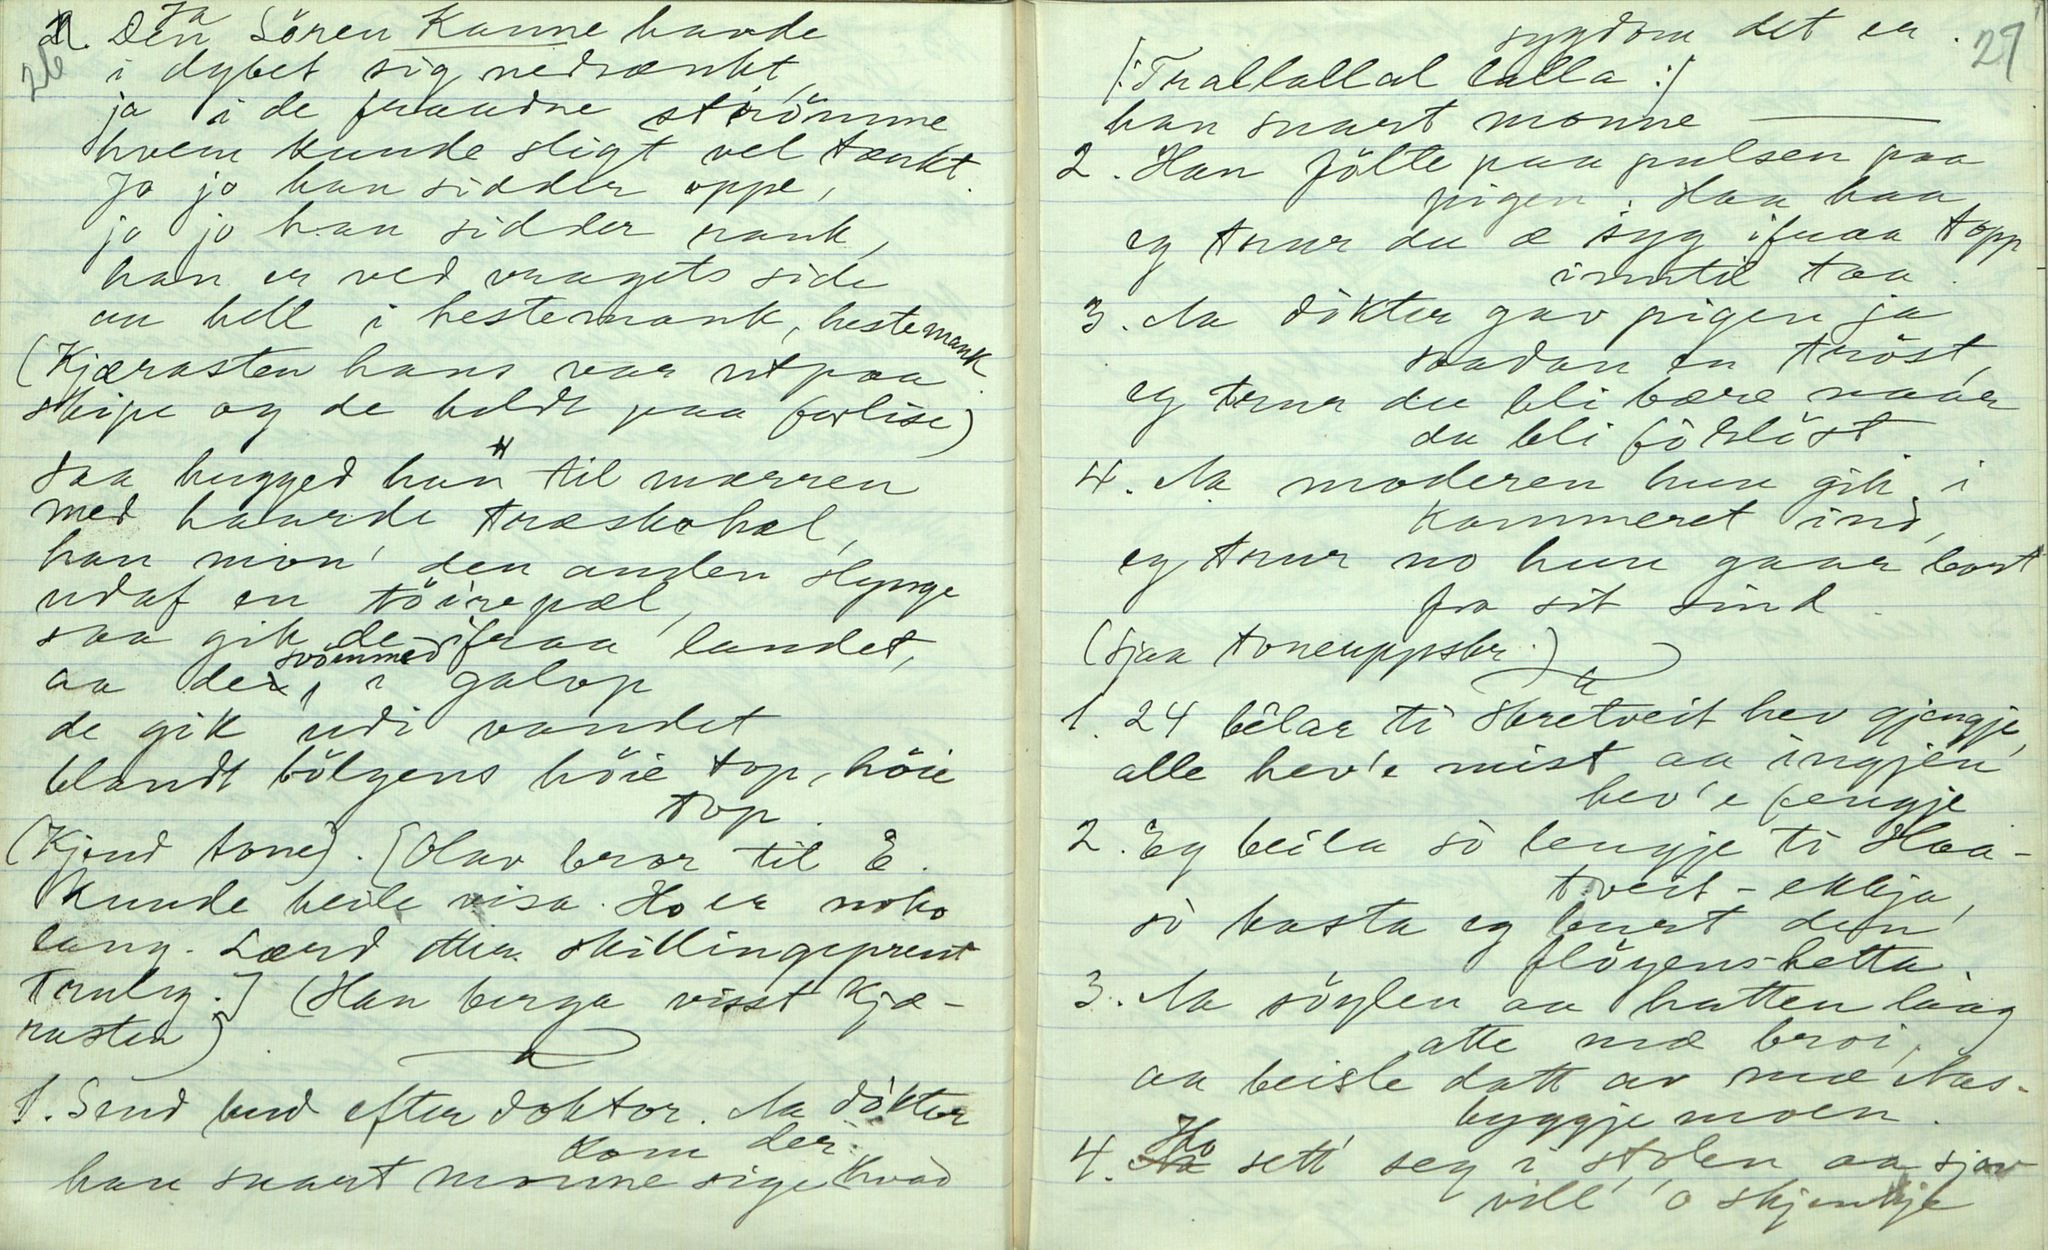 26
Ja
2. Den Sören Kanne havde
i dybet sig nedsænkt,
ja i de fraadne strömme
hvem kunde sligt vel tænkt.
Jo jo han sidder oppe,
jo jo han sidder rank,
han er ved vragets side
aa held i hestemank, hestemank.
(Kjærasten hans var utpaa
skipe og de heldt paa forlise)
saa hugged han til mærren
med haarde træskohæl,
han mon' den anden slynge
udaf en töirepæl,
saa gik de ifraa landet,
aa de svömmed i galop
de gik udi vandet
blandt bölgens höie top, höie
top.
(Kjend tone). [Olav bror til E.
kunde heile visa. Ho er noko
lang. Lærd etter skillingsprent
truleg.] (Han berga visst kjæ-
rasten)
1. Send bud efter doktor. Aa dòkter
kom der.
han snart monne sige hvad
27
sygdom det er.
/: Trallallal lalla :/
han snart monne ———
2. Han fölte paa pulsen paa
pigen. Haa haa
eg trur du æ syg ifraa topp
inntil taa.
3. Aa dòkter gav pigen ja
saadan en tröst,
eg trur du bli bære naar
du bli förlöst
4. Aa moderen hun gik i
kammeret ind,
eg trur no hun gaar bort
fra sit sind.
(Sjaa toneuppskr.)
1. 24 bêlar ti Skretveit hev gjengje,
alle hev'e mist aa ingjen
hev'e fengje
2. Eg beila sò lengje ti Haa-
tveit-ekkja,
sò kasta eg burt den
flöyenshetta.
3. Aa söylen aa hatten laag
atte mæ broi,
aa beisle datt av mæ Aas-
byggjemoen.
4. Ho sett' seg i stolen aa sjav
vill' o skjenkje